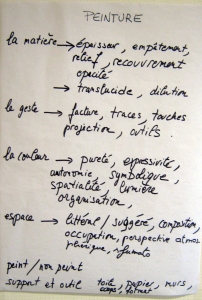 PEINTURE
la matière → épaisseur, empâtement,
relief, recouvrement
opacité
→ translucide, dilution
le geste → facture, traces, touches
projection, outils.
la couleur → pureté, expressivité,
autonomie, symbolique,
spatialité, lumière
organisation,
espace → littéral / suggéré, composition,
occupation, perspective atmos
phérique, sfumato
peint / non peint
support et outil toile, papier, murs,
corps, format